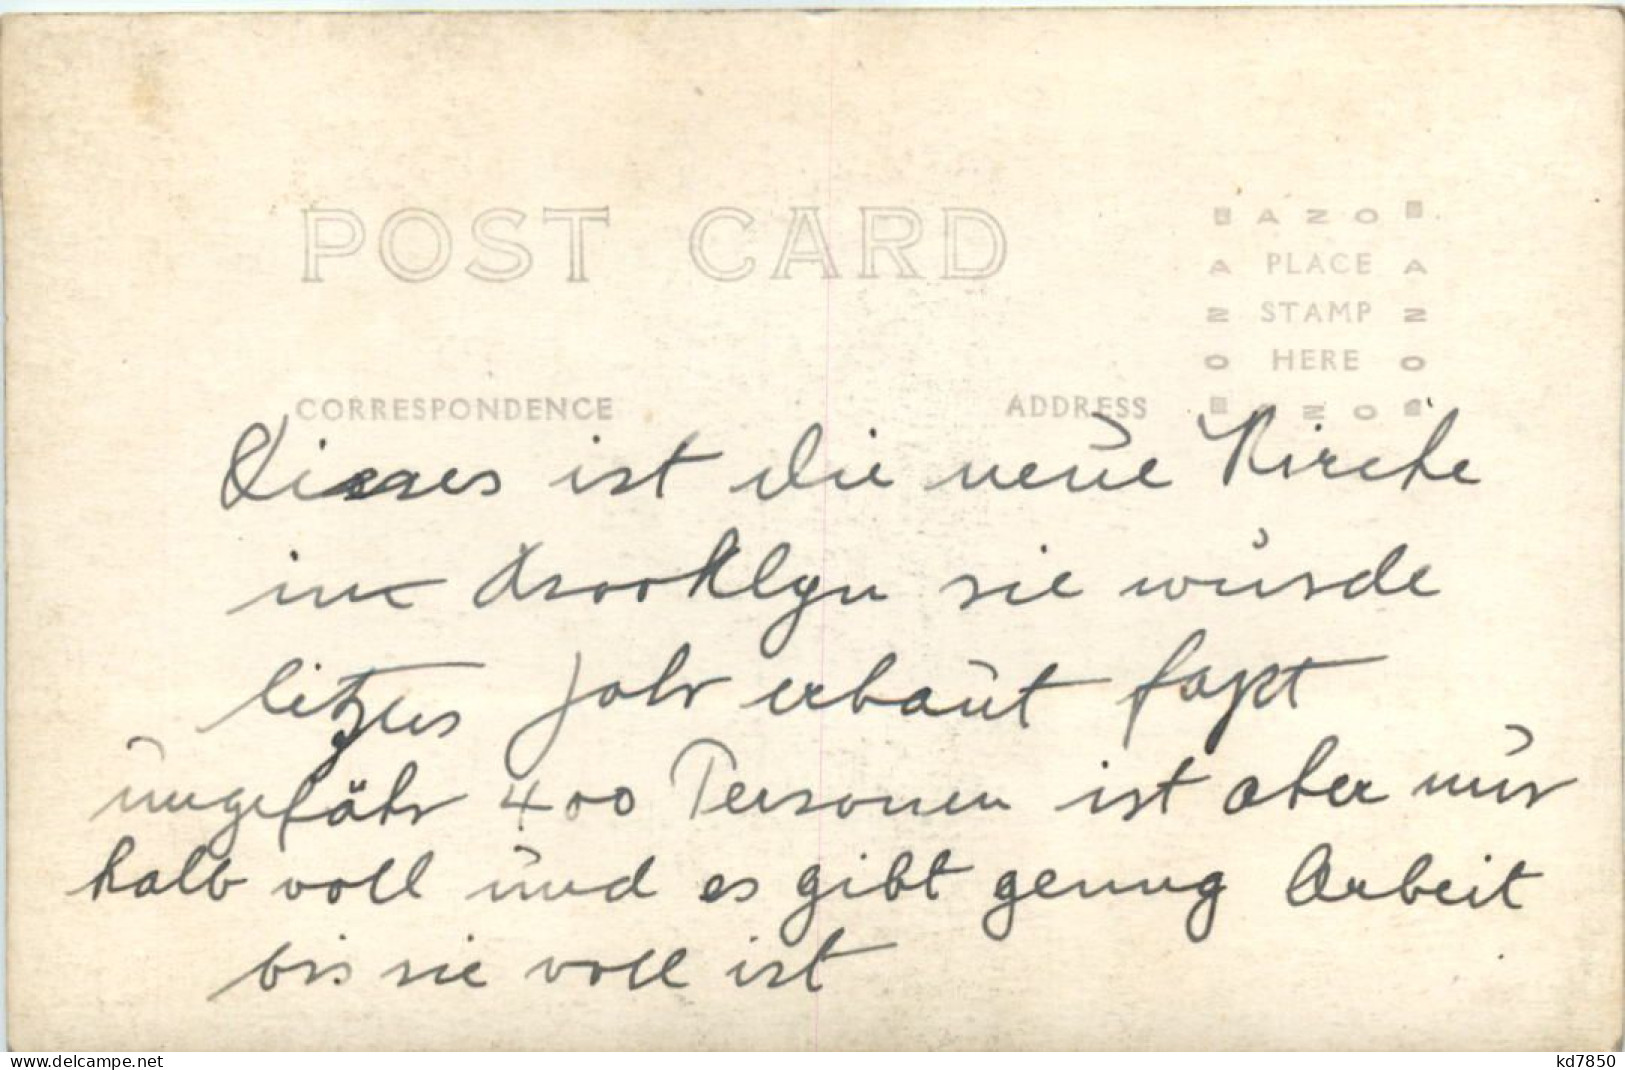 POST CARD
AZO
A PLACE A
N STAMP N
O HERE O
CORRESPONDENCE
ADDRESS
Dieses ist die neue Kirche
in Brooklyn sie wurde
litzes Jahr erbaut faßt
ungefähr 400 Personen ist aber nur
halb voll und es gibt genug Arbeit
bis sie voll ist
www.delcampe.net
kd7850